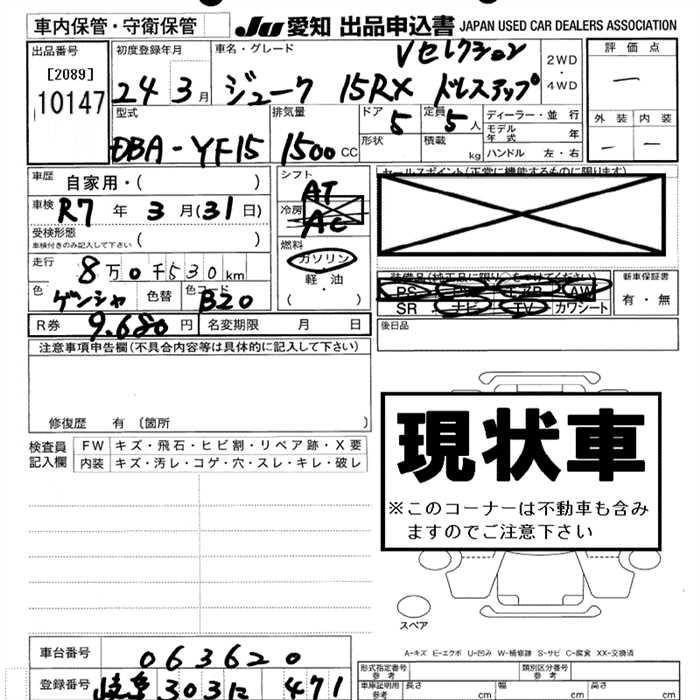 車内保管・守衛保管 JU 愛知 出品申込書 JAPAN USED CAR DEALERS ASSOCIATION
出品番号 初度登録年月 車名・グレード Vセレクション 2WD・4WD 評価点
[2089]
10147 24 3月 ジューク 15RX ドレスアップ —
型式 排気量 ドア 5 定員 5人 ディーラー・並行 外装 内装
DBA-YF15 1500cc 形状 積載 kg モデル年式 年 — —
ハンドル 左・右
車歴 自家用・( ) シフト AT セールスポイント(正常に機能するものに限ります)
車検 R7年3月(31日) 冷房 AC
受検形態
車検付きのみ記入して下さい ( ) 燃料 ガソリン・軽油・( )
走行 8万0千530km 装備品(純正品に限り○をつけてください) 新車保証書
色 ゲンシャ 色替 色コード B20 PS AW 有・無
SR ナビ TV カワシート
R券 9.680円 名変期限 月 日 後日品
注意事項申告欄(不具合内容等は具体的に記入して下さい)
修復歴 有(箇所 )
検査員記入欄 FW キズ・飛石・ヒビ割・リペア跡・X要
内装 キズ・汚レ・コゲ・穴・スレ・キレ・破レ
現状車
※このコーナーは不動車も含みますのでご注意下さい
スペア
A-キズ E-エクボ U-凹み W-補修跡 S-サビ C-腐食 XX-交換済
車台番号 063620 形式指定番号 参考 類別区分番号 参考
登録番号 岐阜 303 471 車庫証明用 参考 長さ cm 幅 cm 高さ cm